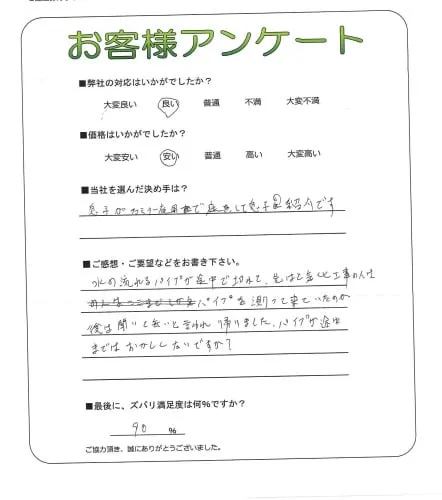 お客様アンケート
■弊社の対応はいかがでしたか？
大変良い 良い 普通 不満 大変不満
■価格はいかがでしたか？
大変安い 安い 普通 高い 大変高い
■当社を選んだ決め手は？
息子が 紹介です
■ご感想・ご要望などをお書き下さい。
水の流れるパイプが途中で切れて、 工事の人は
パイプを測って来ていたのか
後は聞いて無いと言われ帰りました。パイプが途中
まではおかしくないですか？
■最後に、ズバリ満足度は何%ですか？
90 %
ご協力頂き、誠にありがとうございました。